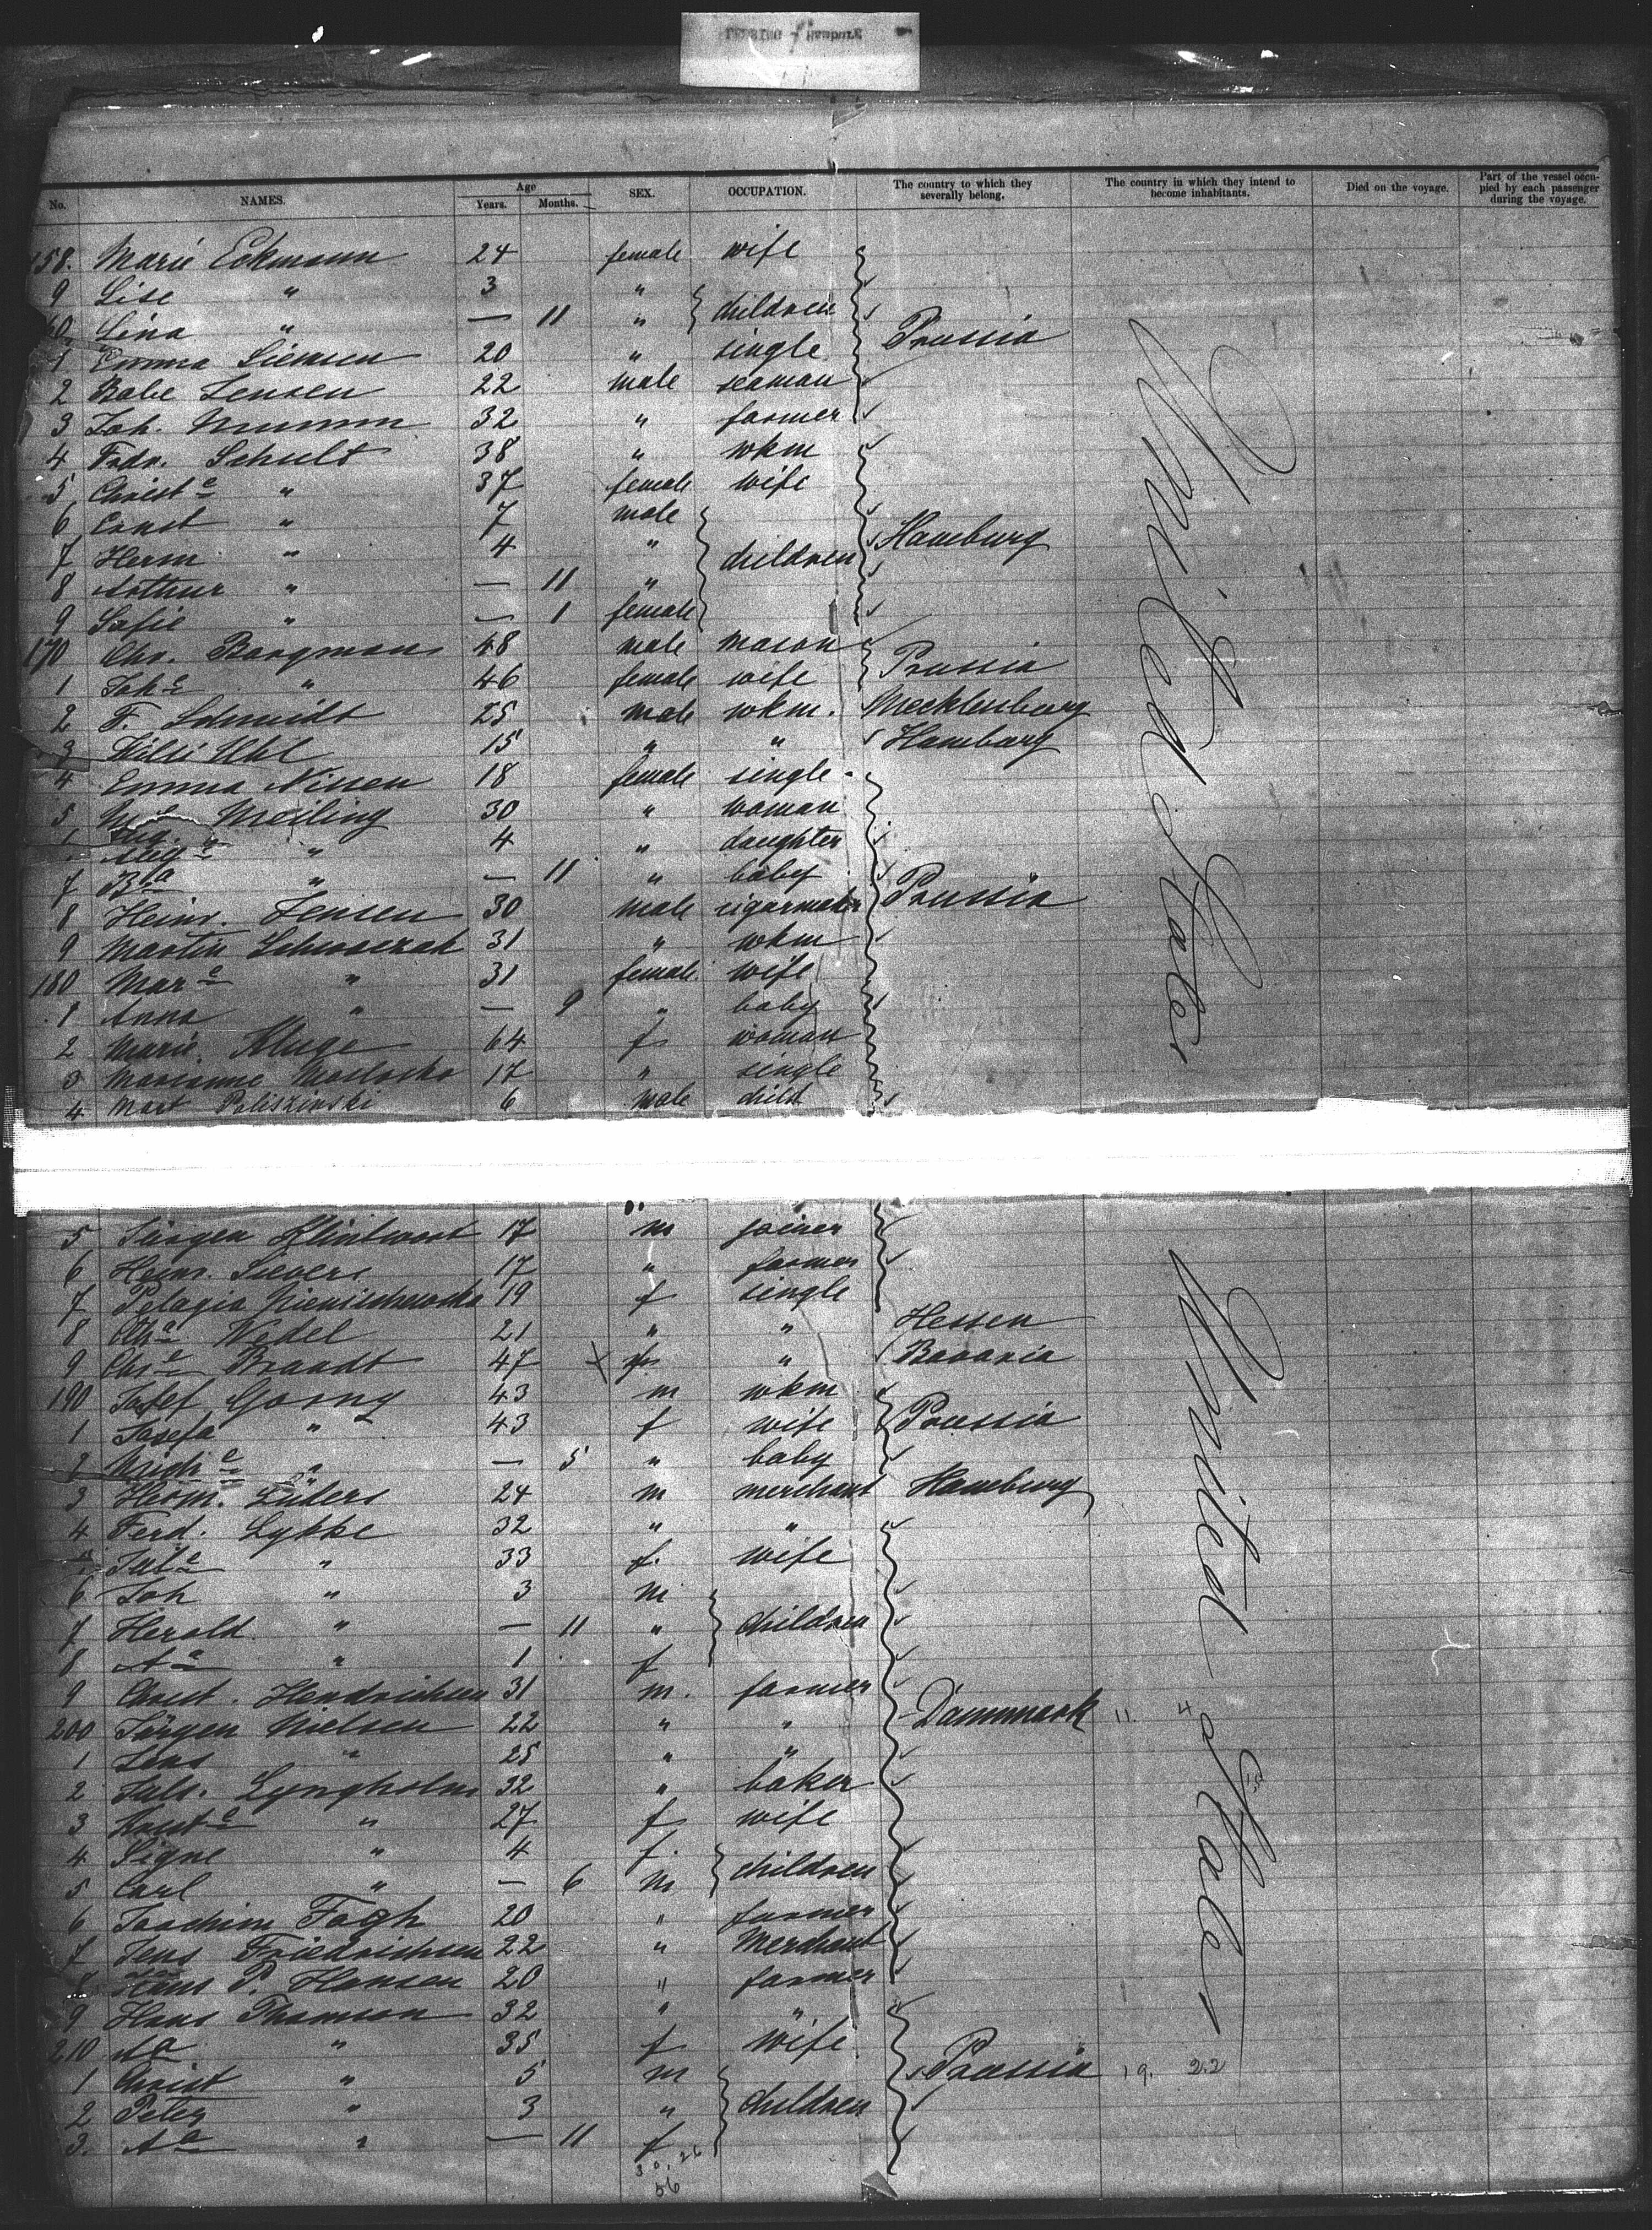 No. NAMES. Age Years. Months. SEX. OCCUPATION. The country to which they severally belong. The country in which they intend to become inhabitants. Died on the voyage. Part of the vessel occupied by each passenger during the voyage.
158. Marie Eckmann 24 female wife
9 Lise " 3 "
60 Lina " — 11 " children
1 Emma Siemsen 20 " single Prussia
2 Bale Jensen 22 male seaman
3 Joh. Mumm 32 " farmer
4 Frdr. Schult 38 " wkm
5 Christe " 37 female wife
6 Ernst " 7 male
7 Herm " 4 " children Hamburg
8 Arthur " — 11 "
9 Sofie " — 1 female
170 Chr. Bargmann 48 male mason
1 Johe " 46 female wife Prussia
2 F. Schmidt 25 male wkm. Mecklenburg
3 Uhl 15 " " Hamburg
4 Emma Nissen 18 female single
5 Meiling 30 " woman
Auge " 4 " daughter
7 Bta " — 11 " baby
8 Heinr. Jensen 30 male cigarmaker Prussia
9 Martin 31 " wkm
180 Mare " 31 female wife
1 Anna " — 9 " baby
2 Marie Kluge 64 f woman
3 Marianne 17 " single
4 Mart 6 male child
United States
5 Jürgen 17 m joiner
6 Heinr. Sievers 17 " farmer
7 Pelagia 19 f single
8 Che Wedel 21 " " Hessen
9 Chre Brandt 47 f " Bavaria
190 Josef Gorny 43 m wkm
1 Josefa " 43 f wife Prussia
2 Miche " — 5 " baby
3 Herm. Lüders 24 m merchant Hamburg
4 Ferd. Lykke 32 " "
Jule " 33 f. wife
6 Joh " 3 m
7 Herold " — 11 " children
8 Ae " 1 f
9 Christ. Hendrichsen 31 m. farmer
200 Jürgen Nielsen 22 " " Dannmark 11. 4
1 Jens " 25 " "
2 Juls. Lyngholm 32 " baker
3 " 27 f wife
4 Signe " 4 f.
5 Carl " — 6 m children
6 Joachim Fogh 20 " farmer
7 Jens Friedrichsen 22 " Merchant
8 Hans P. Hansen 20 " farmer
9 Hans Thomsen 32 " "
210 Aa " 35 f wife
1 Christ " 5 m Prussia 19. 22
2 Peter " 3 " children
3. Ae " — 11 f
30. 26
56
United States